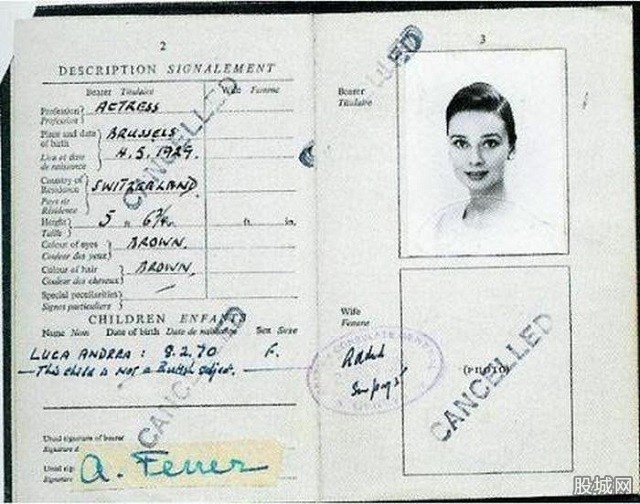 2
DESCRIPTION SIGNALEMENT
Bearer Titulaire Wife Femme
Profession
Profession
ACTRESS
Place and date
of birth
BRUSSELS
Lieu et date
de naissance
4.5.1929.
Country of
Residence
SWITZERLAND
Pays de
Résidence
Height
Taille
5 6¾
Colour of eyes
BROWN.
Couleur des yeux
Colour of hair
BROWN.
Couleur des cheveux
Special peculiarities
Signes particuliers
CHILDREN ENFANTS
Name Nom Date of birth Date de naissance Sex Sexe
LUCA ANDREA: 8.2.70 F.
This child is not a British subject.
Usual signature of bearer
Signature d
Usual sig
Signature
A. Ferrer
CANCELLED
CANCELLED
3
CANCELLED
Bearer
Titulaire
Wife
Femme
(PHOTO)
CANCELLED
股城网